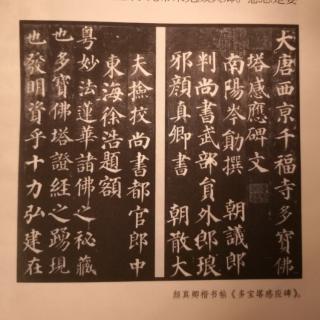 大唐西京千福寺多寶佛
塔感應碑文
南陽岑勛撰 朝議郎
判尚書武部員外郎琅
邪顏真卿書 朝散大
夫撿挍尚書都官郎中
東海徐浩題額
粤妙法蓮華諸佛之秘藏
也多寶佛塔證經之踴現
也發明資乎十力弘建在
颜真卿楷书帖《多宝塔感应碑》。